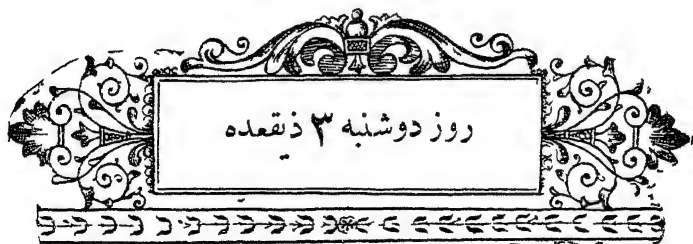 روز دوشنبه ۳ ذیقعده